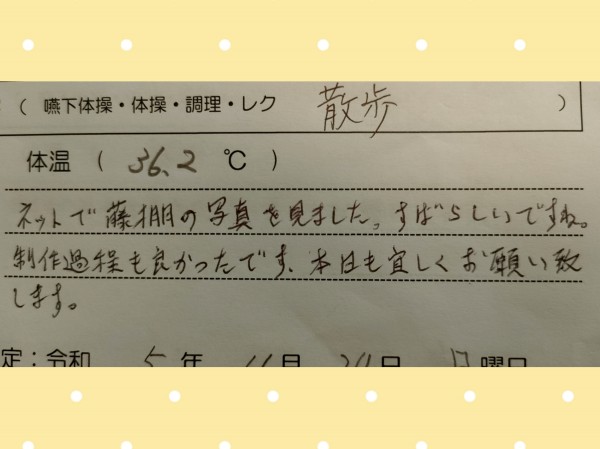 ( 嚥下体操・体操・調理・レク 散歩 )
体温 ( 36.2 ℃ )
ネットで藤棚の写真を見ました。すばらしいですね。
制作過程も良かったです、本日も宜しくお願い致
します。
定:令和 5年 月 日 曜日